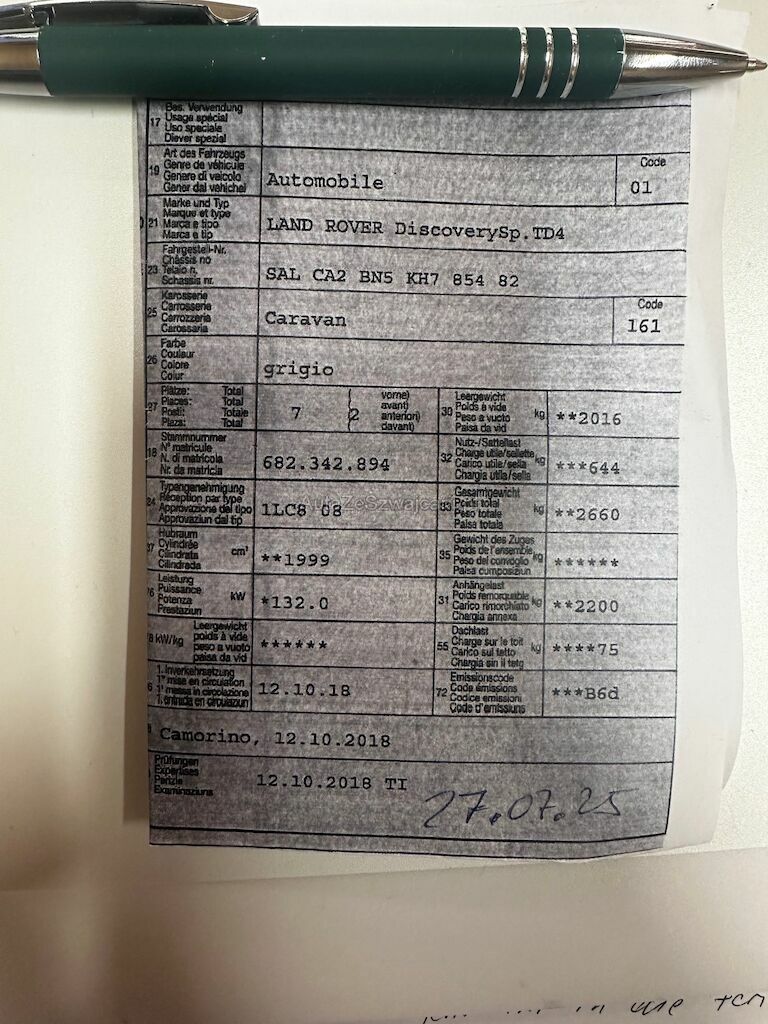 17 Bes. Verwendung
Usage spécial
Uso speciale
Diever spezial
19 Art des Fahrzeugs
Genre de véhicule
Genere di veicolo
Gener dal vehichel
Automobile
Code
01
21 Marke und Typ
Marque et type
Marca e tipo
Marca e tip
LAND ROVER DiscoverySp.TD4
23 Fahrgestell-Nr.
Châssis no
Telaio n.
Schassis nr.
SAL CA2 BN5 KH7 854 82
25 Karosserie
Carrosserie
Carrozzeria
Carossaria
Caravan
Code
161
26 Farbe
Couleur
Colore
Colur
grigio
27 Plätze: Total
Places: Total
Posti: Totale
Plazs: Total
7 (2 vorne)
avant)
anteriori)
davant)
30 Leergewicht
Poids à vide
Peso a vuoto
Paisa da vid
kg **2016
18 Stammnummer
N° matricule
N. di matricola
Nr. da matricla
682.342.894
32 Nutz-/Sattellast
Charge utile/sellette
Carico utile/sella
Chargia utila/sella
kg ***644
24 Typengenehmigung
Réception par type
Approvazione del tipo
Approvaziun dal tip
1LC8 08
33 Gesamtgewicht
Poids total
Peso totale
Paisa totala
kg **2660
37 Hubraum
Cylindrée
Cilindrata
Cilindrada
cm³ **1999
35 Gewicht des Zuges
Poids de l'ensemble
Peso del convoglio
Paisa cumposiziun
kg ******
76 Leistung
Puissance
Potenza
Prestaziun
kW *132.0
31 Anhängelast
Poids remorquable
Carico rimorchiato
Chargia annexa
kg **2200
8 kW/kg Leergewicht
poids à vide
peso a vuoto
paisa da vid
******
55 Dachlast
Charge sur le toit
Carico sul tetto
Chargia sin il tetg
kg ****75
6 1. Inverkehrsetzung
1re mise en circulation
1a messa in circolazione
1. entrada en circulaziun
12.10.18
72 Emissionscode
Code émissions
Codice emissioni
Code d'emissiuns
***B6d
Camorino, 12.10.2018
Prüfungen
Expertises
Perizie
Examinaziuns
12.10.2018 TI
27.07.25